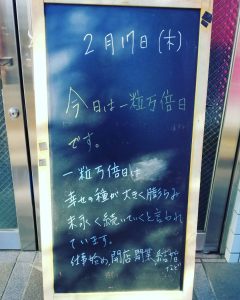 2月17日(木)
今日は一粒万倍日
です。
一粒万倍日は
幸せの種が大きく膨らみ
末永く続いていくと言われ
ています。
仕事始め、開店、開業、結婚
など